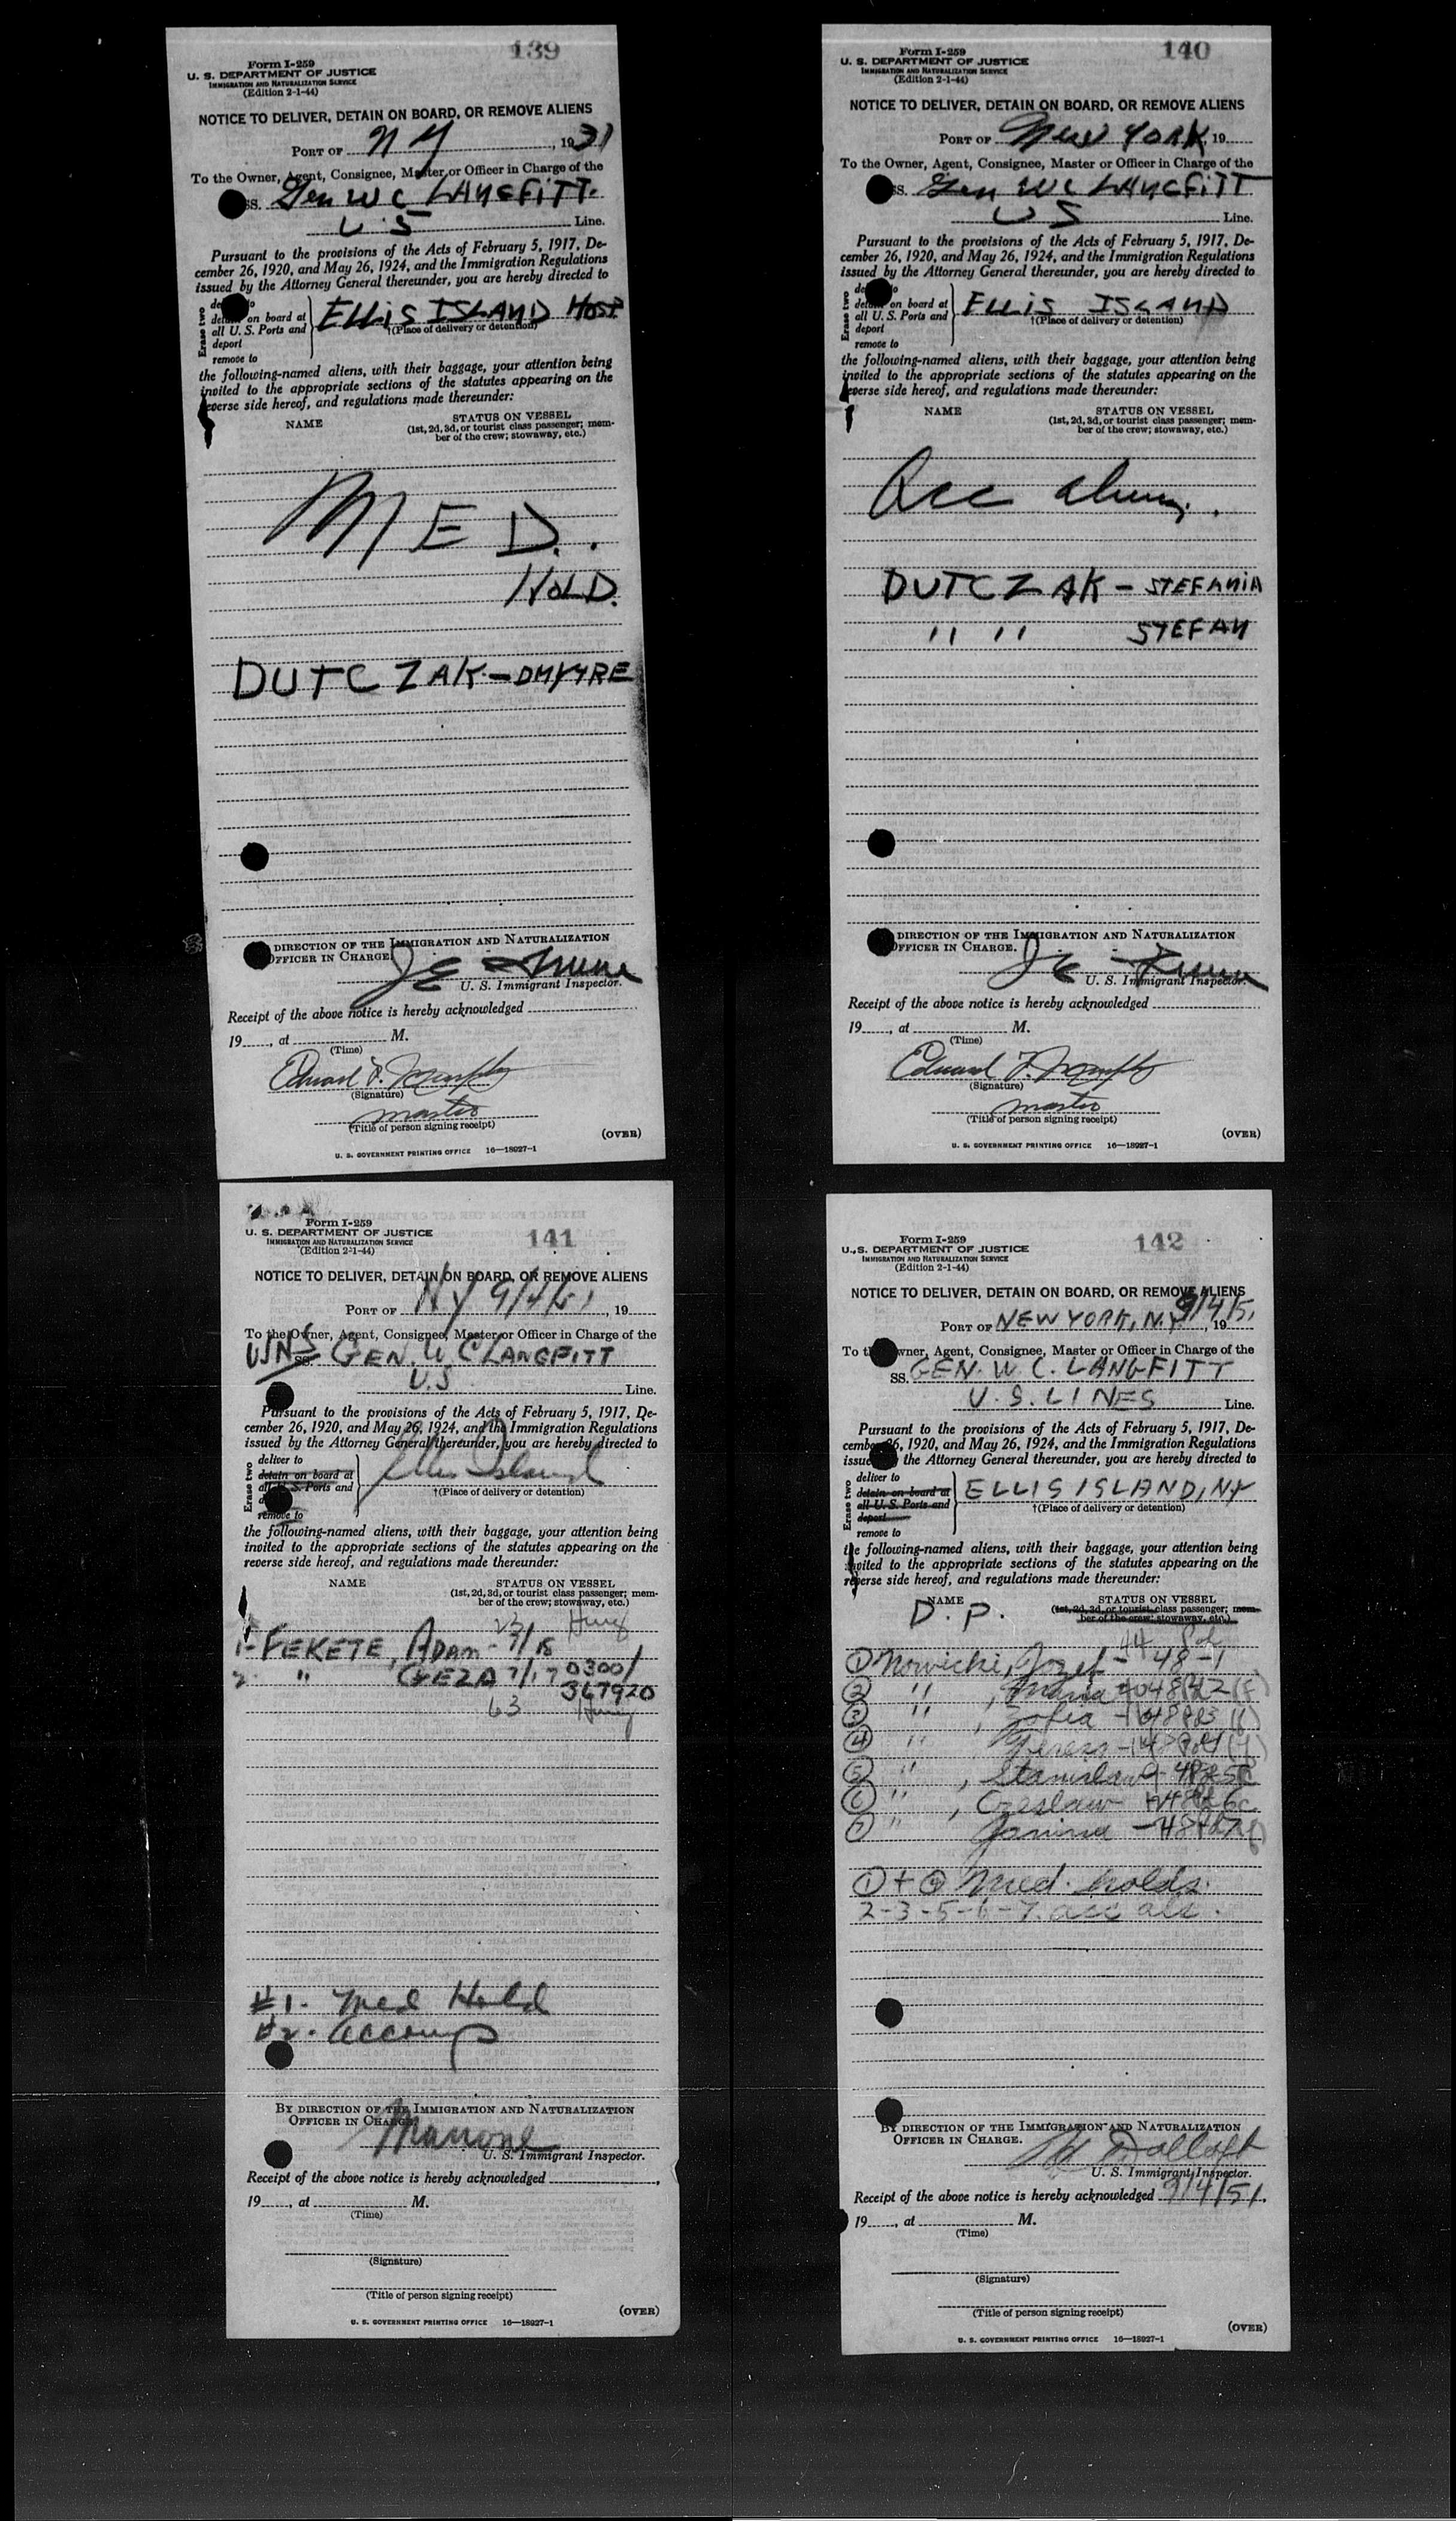 139
Form I-259
U. S. DEPARTMENT OF JUSTICE
IMMIGRATION AND NATURALIZATION SERVICE
(Edition 2-1-44)
NOTICE TO DELIVER, DETAIN ON BOARD, OR REMOVE ALIENS
PORT OF N Y, 1931
To the Owner, Agent, Consignee, Master or Officer in Charge of the
SS. Gen W C LANGFITT.
U S Line.
Pursuant to the provisions of the Acts of February 5, 1917, De-
cember 26, 1920, and May 26, 1924, and the Immigration Regulations
issued by the Attorney General thereunder, you are hereby directed to
Erase two
on board at
all U. S. Ports and
deport
remove to
ELLIS ISLAND HOSP.
†(Place of delivery or detention)
the following-named aliens, with their baggage, your attention being
invited to the appropriate sections of the statutes appearing on the
reverse side hereof, and regulations made thereunder:
NAME STATUS ON VESSEL
(1st, 2d, 3d, or tourist class passenger; mem-
ber of the crew; stowaway, etc.)
MED.
HOLD.
DUTCZAK - DMYTRE
DIRECTION OF THE IMMIGRATION AND NATURALIZATION
OFFICER IN CHARGE.
U. S. Immigrant Inspector.
Receipt of the above notice is hereby acknowledged
19......, at M.
(Time)
Edward F. Murphy
(Signature)
master
(Title of person signing receipt)
(OVER)
U. S. GOVERNMENT PRINTING OFFICE 16—18927-1
140
Form I-259
U. S. DEPARTMENT OF JUSTICE
IMMIGRATION AND NATURALIZATION SERVICE
(Edition 2-1-44)
NOTICE TO DELIVER, DETAIN ON BOARD, OR REMOVE ALIENS
PORT OF New YORK, 19
To the Owner, Agent, Consignee, Master or Officer in Charge of the
SS. Gen W C LANGFITT
U S Line.
Pursuant to the provisions of the Acts of February 5, 1917, De-
cember 26, 1920, and May 26, 1924, and the Immigration Regulations
issued by the Attorney General thereunder, you are hereby directed to
Erase two
on board at
all U. S. Ports and
deport
remove to
ELLIS ISLAND
†(Place of delivery or detention)
the following-named aliens, with their baggage, your attention being
invited to the appropriate sections of the statutes appearing on the
reverse side hereof, and regulations made thereunder:
NAME STATUS ON VESSEL
(1st, 2d, 3d, or tourist class passenger; mem-
ber of the crew; stowaway, etc.)
Acc
DUTCZAK - STEFANIA
" " STEFAN
DIRECTION OF THE IMMIGRATION AND NATURALIZATION
OFFICER IN CHARGE.
U. S. Immigrant Inspector.
Receipt of the above notice is hereby acknowledged
19......, at M.
(Time)
Edward F. Murphy
(Signature)
master
(Title of person signing receipt)
(OVER)
U. S. GOVERNMENT PRINTING OFFICE 16—18927-1
141
Form I-259
U. S. DEPARTMENT OF JUSTICE
IMMIGRATION AND NATURALIZATION SERVICE
(Edition 2-1-44)
NOTICE TO DELIVER, DETAIN ON BOARD, OR REMOVE ALIENS
PORT OF NY 9/4/51, 19
To the Owner, Agent, Consignee, Master or Officer in Charge of the
USNS SS. GEN. W C LANGFITT
U.S Line.
Pursuant to the provisions of the Acts of February 5, 1917, De-
cember 26, 1920, and May 26, 1924, and the Immigration Regulations
issued by the Attorney General thereunder, you are hereby directed to
Erase two
deliver to
detain on board at
all U. S. Ports and
remove to
Ellis Island
†(Place of delivery or detention)
the following-named aliens, with their baggage, your attention being
invited to the appropriate sections of the statutes appearing on the
reverse side hereof, and regulations made thereunder:
NAME STATUS ON VESSEL
(1st, 2d, 3d, or tourist class passenger; mem-
ber of the crew; stowaway, etc.)
23 Hung
1- FEKETE, ADAM - 7/18
2- " GEZA 7/17 0300/
367920
63 Hung
#1. Med Hold
#2. Accomp
BY DIRECTION OF THE IMMIGRATION AND NATURALIZATION
OFFICER IN CHARGE.
U. S. Immigrant Inspector.
Receipt of the above notice is hereby acknowledged
19......, at M.
(Time)
(Signature)
(Title of person signing receipt)
(OVER)
U. S. GOVERNMENT PRINTING OFFICE 16—18927-1
142
Form I-259
U. S. DEPARTMENT OF JUSTICE
IMMIGRATION AND NATURALIZATION SERVICE
(Edition 2-1-44)
NOTICE TO DELIVER, DETAIN ON BOARD, OR REMOVE ALIENS
PORT OF NEW YORK, N.Y 9/4/51, 19
To the Owner, Agent, Consignee, Master or Officer in Charge of the
SS. GEN. W. C. LANGFITT
U. S. LINES Line.
Pursuant to the provisions of the Acts of February 5, 1917, De-
cember 26, 1920, and May 26, 1924, and the Immigration Regulations
issued by the Attorney General thereunder, you are hereby directed to
Erase two
deliver to
detain on board at
all U. S. Ports and
deport
remove to
ELLIS ISLAND, NY
†(Place of delivery or detention)
the following-named aliens, with their baggage, your attention being
invited to the appropriate sections of the statutes appearing on the
reverse side hereof, and regulations made thereunder:
NAME STATUS ON VESSEL
(1st, 2d, 3d, or tourist class passenger; mem-
ber of the crew; stowaway, etc.)
D. P.
44 Pol
① Nowicki, Jozef - 48-1
② " , Maria
③ " , Zofia
④ " Teresa
⑤ " , Stanislaw
⑥ " , Czeslaw
⑦ " Janina
① + ④ Med. holds.
2-3-5-6-7. acc als.
BY DIRECTION OF THE IMMIGRATION AND NATURALIZATION
OFFICER IN CHARGE.
U. S. Immigrant Inspector.
Receipt of the above notice is hereby acknowledged 9/4/51.
19......, at M.
(Time)
(Signature)
(Title of person signing receipt)
(OVER)
U. S. GOVERNMENT PRINTING OFFICE 16—18927-1